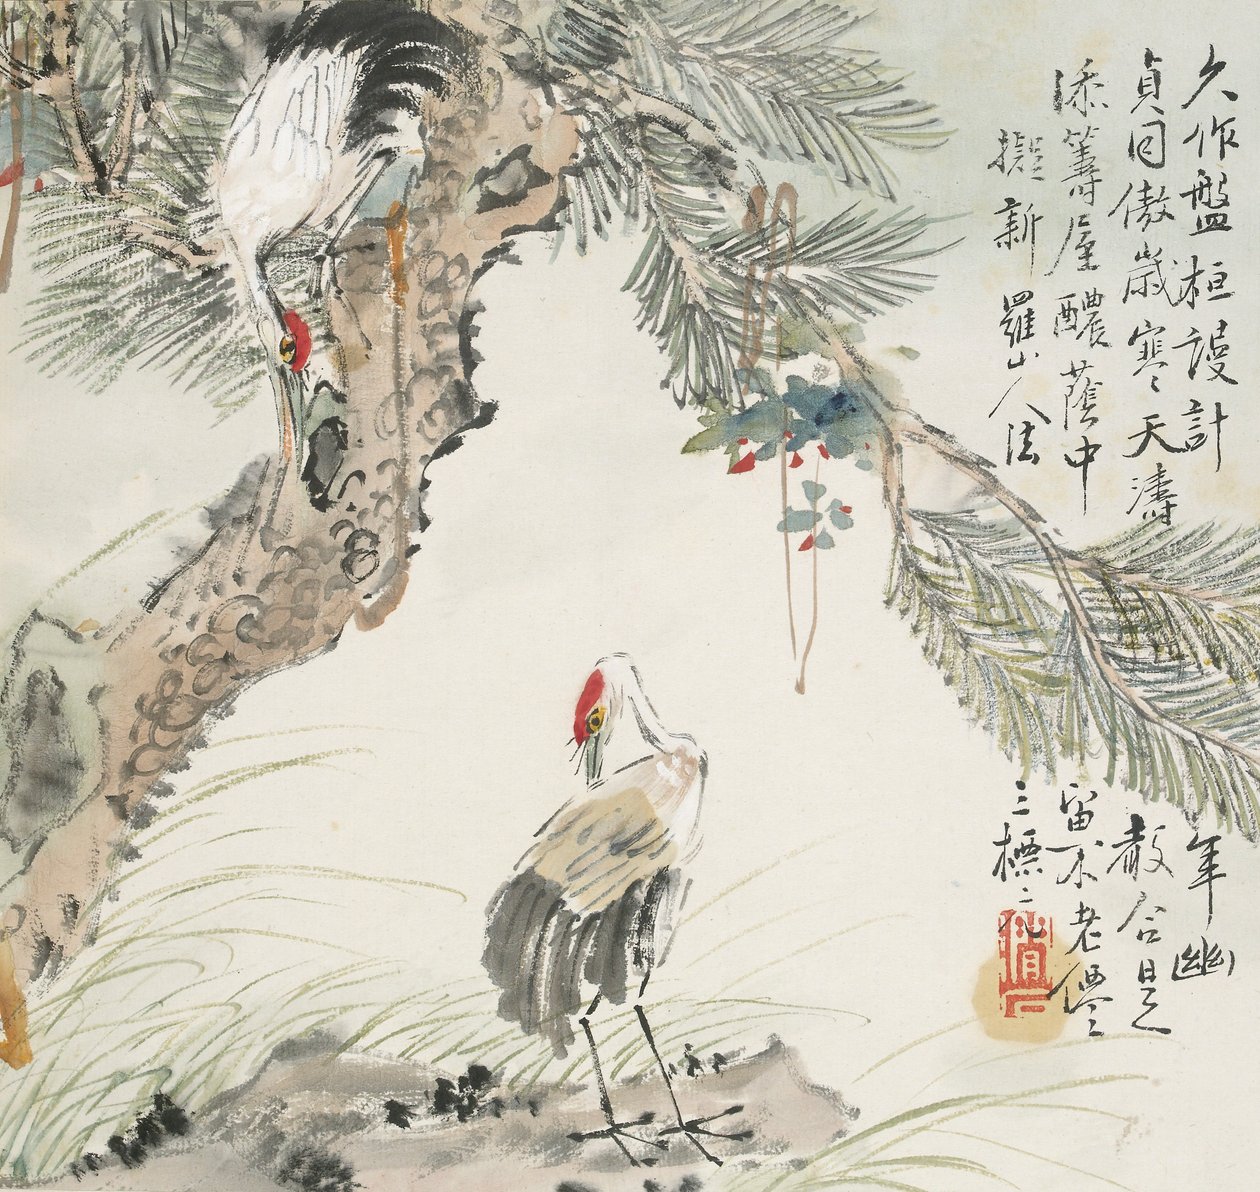 久作盤桓謾計年幽
貞同傲歲寒天濤聲合是
添籌屋醲蔭中留不老僊
擬新羅山人法